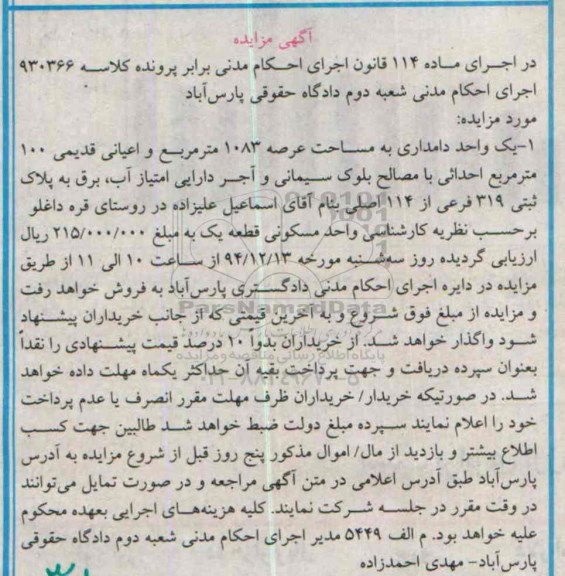 آگهی مزایده
در اجرای ماده ۱۱۴ قانون اجرای احکام مدنی برابر پرونده کلاسه ۹۳۰۳۶۶
اجرای احکام مدنی شعبه دوم دادگاه حقوقی پارس‌آباد
مورد مزایده:
۱-یک واحد دامداری به مساحت عرصه ۱۰۸۳ مترمربع و اعیانی قدیمی ۱۰۰
مترمربع احداثی با مصالح بلوک سیمانی و آجر دارایی امتیاز آب، برق به پلاک
ثبتی ۳۱۹ فرعی از ۱۱۴ اصلی بنام آقای اسماعیل علیزاده در روستای قره داغلو
برحسب نظریه کارشناسی واحد مسکونی قطعه یک به مبلغ ۲۱۵/۰۰۰/۰۰۰ ریال
ارزیابی گردیده روز سه‌شنبه مورخه ۹۴/۱۲/۱۳ از ساعت ۱۰ الی ۱۱ از طریق
مزایده در دایره اجرای احکام مدنی دادگستری پارس‌آباد به فروش خواهد رفت
ParsNamadData
و مزایده از مبلغ فوق شروع و به آخرین قیمتی که از جانب خریداران پیشنهاد
شود واگذار خواهد شد. از خریداران بدواً ۱۰ درصد قیمت پیشنهادی را نقداً
پایگاه اطلاع رسانی مناقصه و مزایده
بعنوان سپرده دریافت و جهت پرداخت بقیه آن حداکثر یکماه مهلت داده خواهد
۰۲۱-۸۸۳۴۹۶۷۰-۵
شد. در صورتیکه خریدار/ خریداران ظرف مهلت مقرر انصرف یا عدم پرداخت
خود را اعلام نمایند سپرده مبلغ دولت ضبط خواهد شد طالبین جهت کسب
اطلاع بیشتر و بازدید از مال/ اموال مذکور پنج روز قبل از شروع مزایده به آدرس
پارس‌آباد طبق آدرس اعلامی در متن آگهی مراجعه و در صورت تمایل می‌توانند
در وقت مقرر در جلسه شرکت نمایند. کلیه هزینه‌های اجرایی بعهده محکوم
علیه خواهد بود. م الف ۵۴۴۹ مدیر اجرای احکام مدنی شعبه دوم دادگاه حقوقی
پارس‌آباد- مهدی احمدزاده